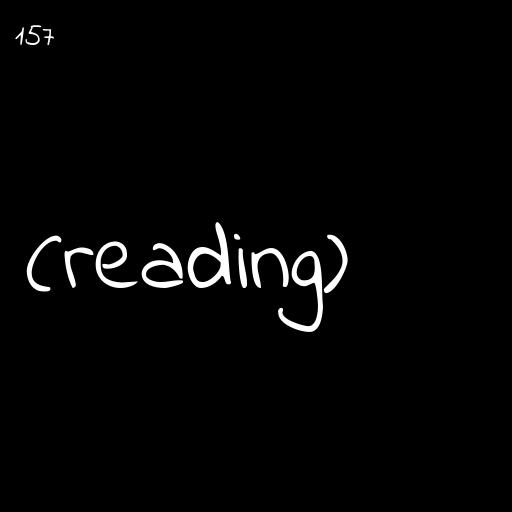 157
(reading)